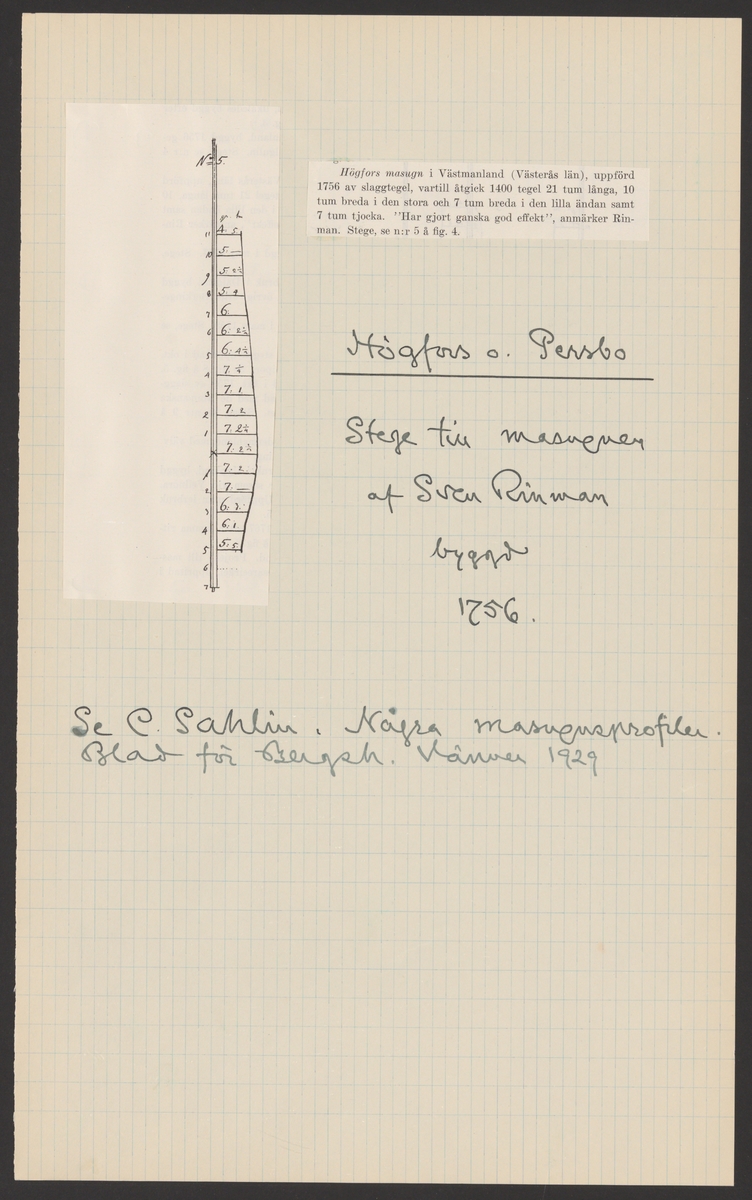 No 5.
q. L.
11 4. 5.
10 5. —
9 5. 2½
8 5. 4
7 6.
6 6. 2½
5 6. 4½
4 7. ½
3 7. 1.
2 7. 2
1 7. 2½
7. 2½
1 7. 2.
2 7. —
3 6. 3.
4 6. 1.
5 5. 5.
6 ......
7
Högfors masugn i Västmanland (Västerås län), uppförd
1756 av slaggtegel, vartill åtgick 1400 tegel 21 tum långa, 10
tum breda i den stora och 7 tum breda i den lilla ändan samt
7 tum tjocka. ”Har gjort ganska god effekt”, anmärker Rin-
man. Stege, se n:r 5 å fig. 4.
Högfors o. Persbo
Stege till masugnen
af Sven Rinman
byggd
1756.
Se C. Sahlin. Några masugnsprofiler.
Blad för Bergsh. Vänner 1929